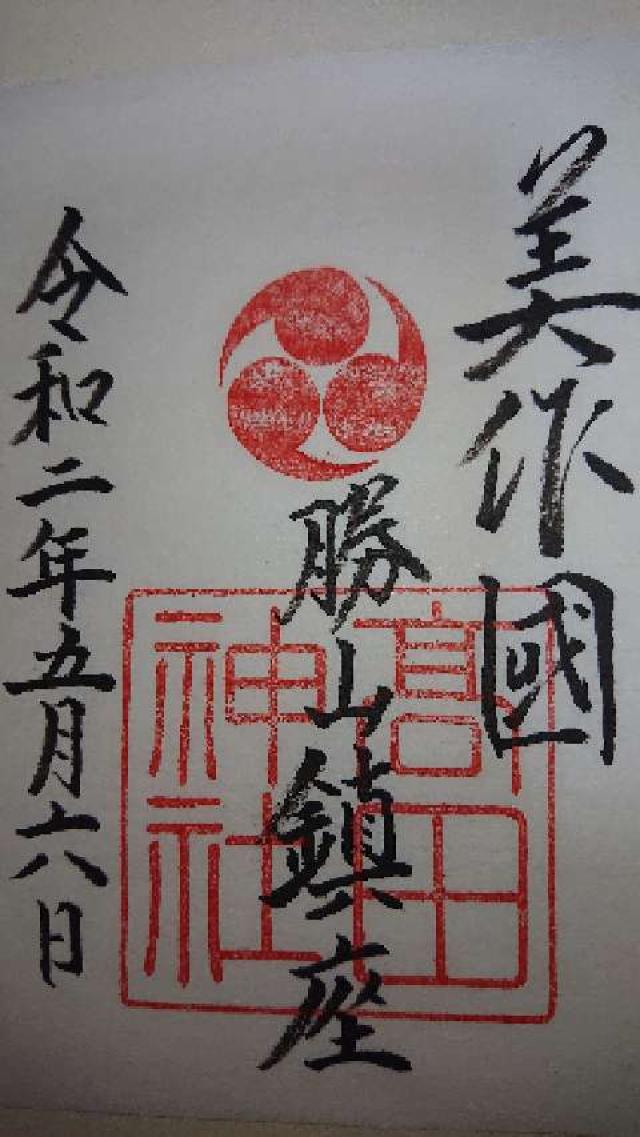 美作國
勝山鎮座
高田
神社
令和二年五月六日